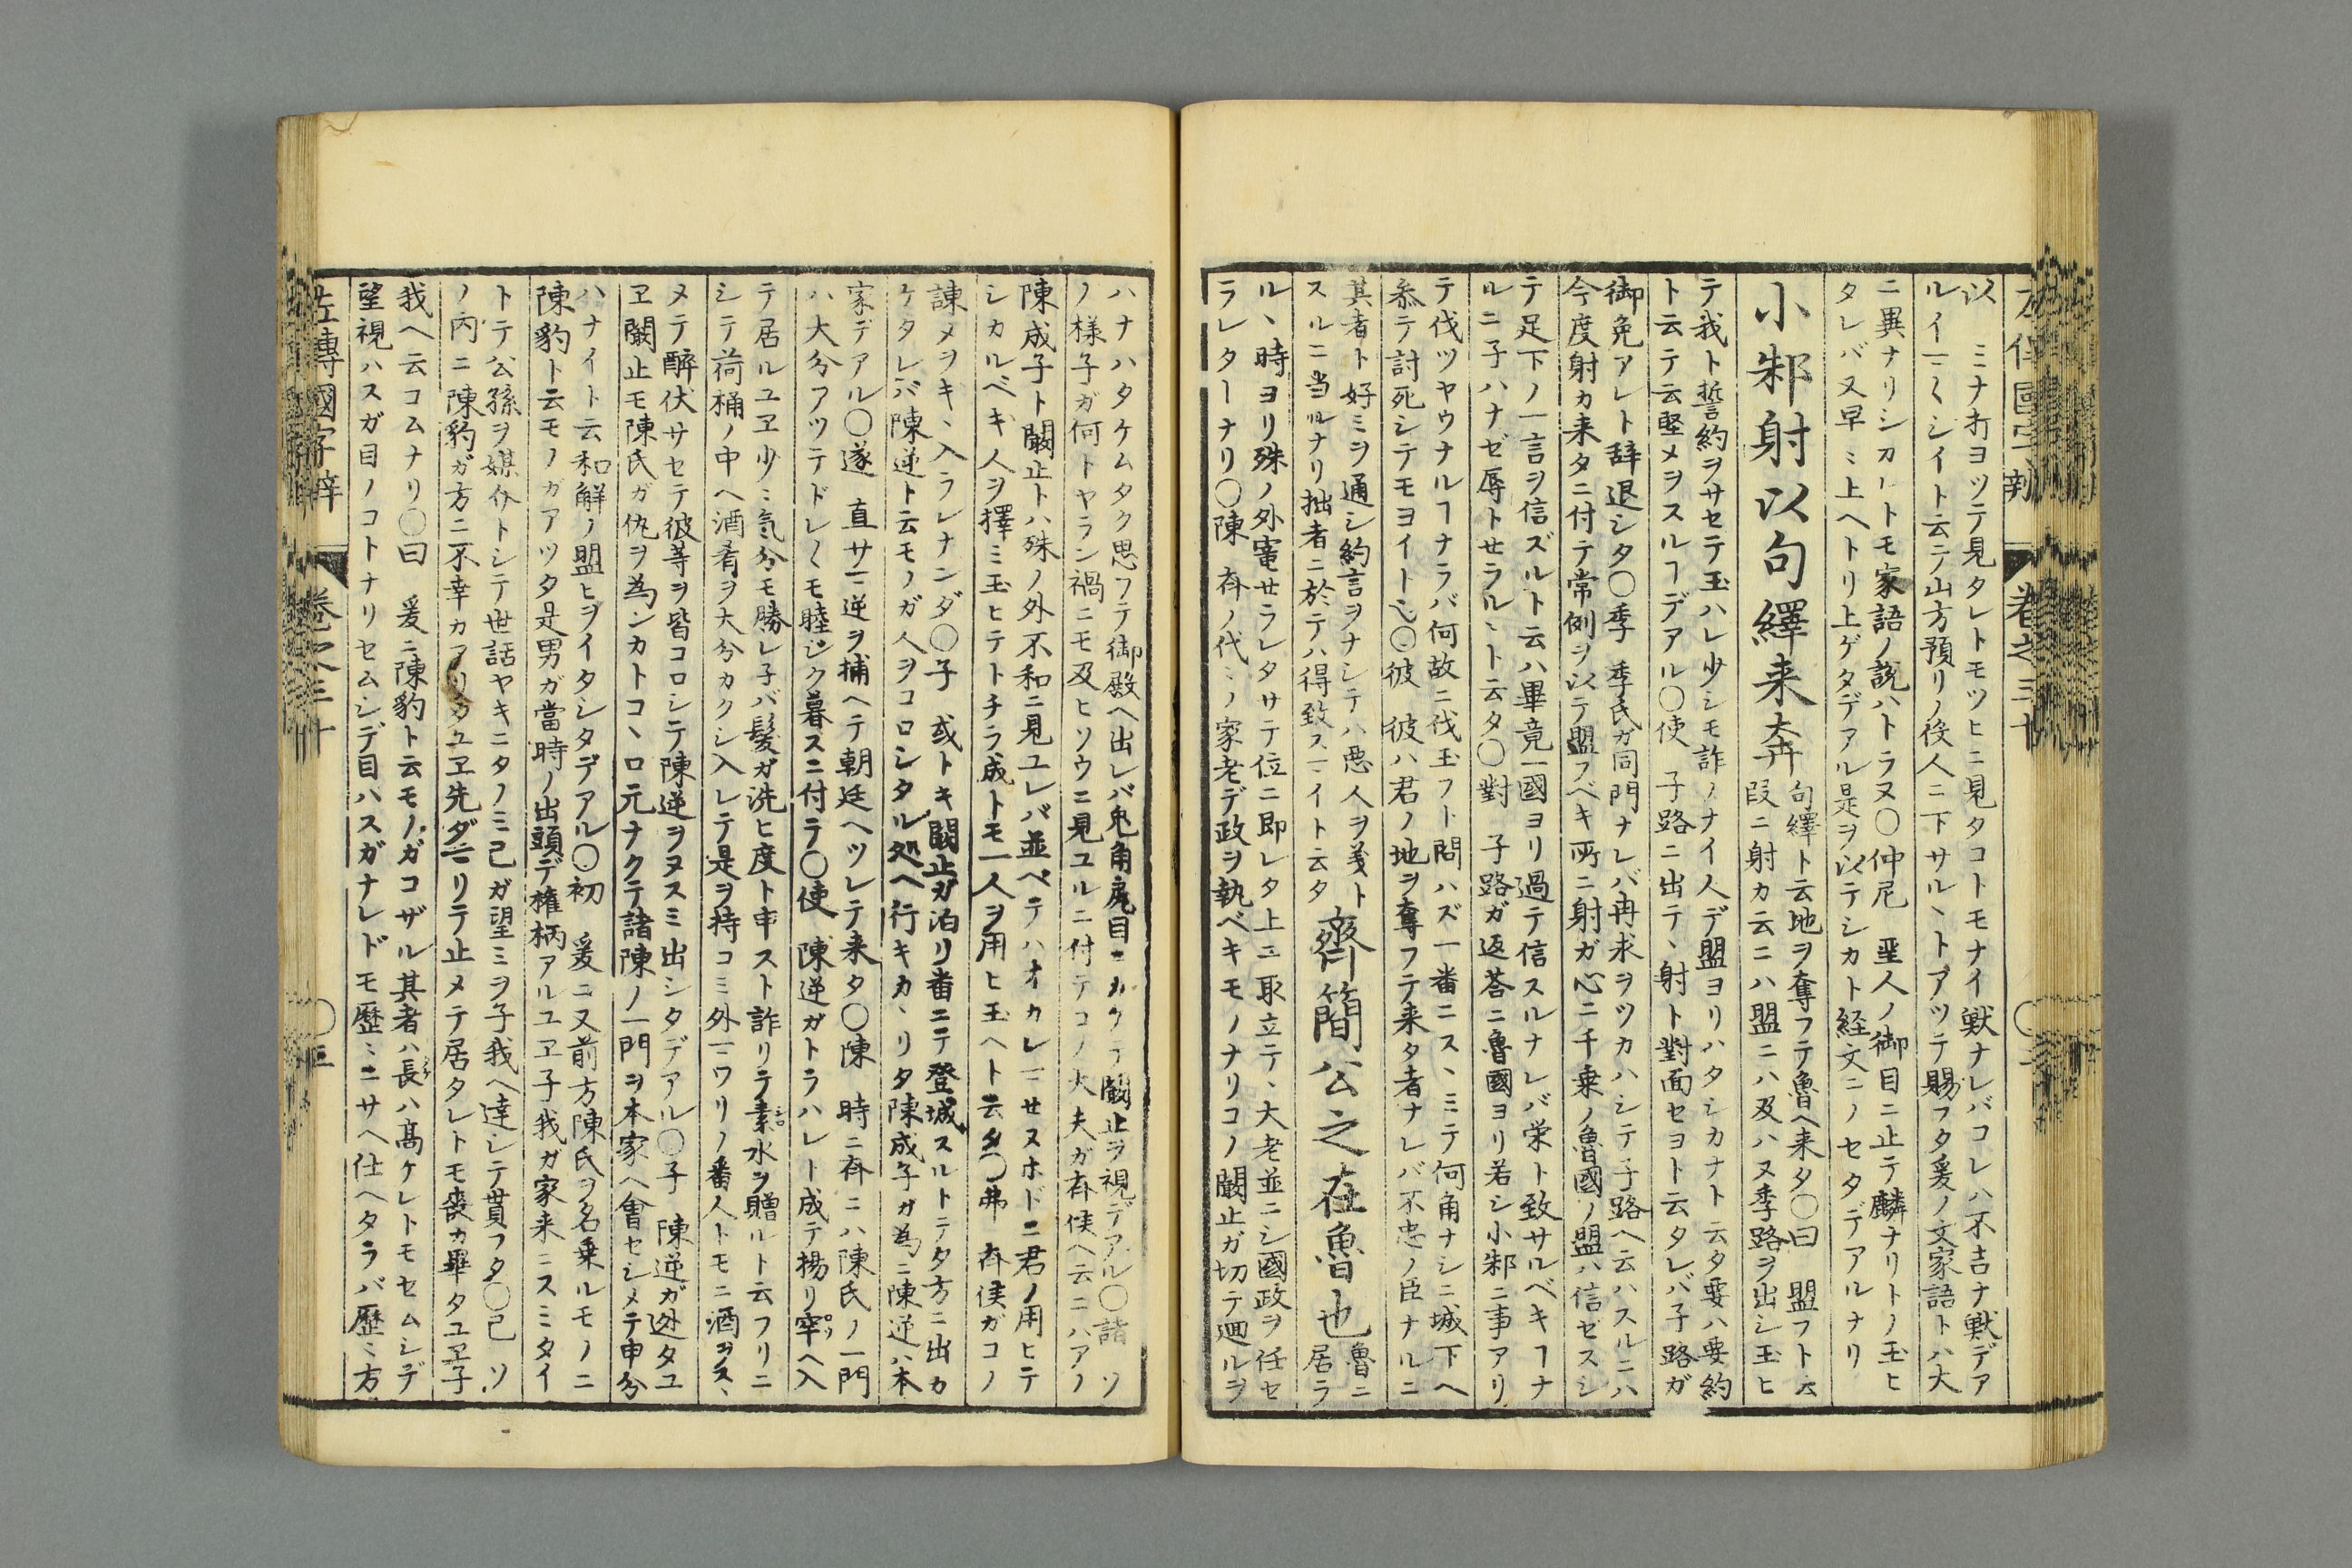 左傳國字辯　卷之三十　〇二
以　ミナ打ヨツテ見タレトモツヒニ見タコトモナイ獣ナレバコレハ不吉ナ獣デア
ルイマ〱シイト云テ山方預リノ役人ニ下サル丶トアツテ賜フタ爰ノ文家語トハ大
ニ異ナリシカレトモ家語ノ説ハトラヌ〇仲尼　聖人ノ御目ニ止テ麟ナリトノ玉ヒ
タレバ又早ミ上ヘトリ上ゲタデアル是ヲ以テシカト経文ニノセタデアルナリ
小邾射以句繹来奔
句繹ト云地ヲ奪フテ魯ヘ来タ〇曰　盟フト云
段ニ射カ云ニハ盟ニハ及ハヌ季路ヲ出シ玉ヒ
テ我ト誓約ヲサセテ玉ハレ少シモ詐ノナイ人デ盟ヨリハタシカナト云タ要ハ要約
ト云テ云堅メヲスルヿデアル〇使　子路ニ出テ丶射ト對面セヨト云タレバ子路ガ
御免アレト辞退シタ〇季　季氏ガ同門ナレバ冉求ヲツカハシテ子路ヘ云ハスルニハ
今度射カ来タニ付テ常例ヲ以テ盟フベキ所ニ射ガ心ニ千乗ノ魯國ノ盟ハ信ゼスシ
テ足下ノ一言ヲ信ズルト云ハ畢竟一國ヨリ過テ信スルナレバ栄ト致サルベキヿナ
ルニ子ハナゼ辱トセラル丶ト云タ〇對　子路ガ返荅ニ魯國ヨリ若シ小邾ニ事アリ
テ伐ツヤウナルヿナラバ何故ニ伐玉フト問ハズ一番ニス丶ミテ何角ナシニ城下ヘ
参テ討死シテモヨイト也〇彼　彼ハ君ノ地ヲ奪フテ来タ者ナレバ不忠ノ臣ナルニ
其者ト好ミヲ通シ約言ヲナシテハ悪人ヲ義ト
スルニ当ルナリ拙者ニ於テハ得致スマイト云タ
齊簡公之在魯也
魯ニ
居ラ
ル丶時ヨリ殊ノ外寵セラレタサテ位ニ即レタ上ニ取立テ丶大老並ニシ國政ヲ任セ
ラレターナリ〇陳　斉ノ代ミノ家老デ政ヲ執ベキモノナリコノ闞止ガ切テ廻ルヲ
ハナハタケムタク思フテ御殿ヘ出レバ兎角尾目ニカケテ闞止ヲ視デアル〇諸　ソ
ノ様子ガ何トヤラン禍ニモ及ヒソウニ見ユルニ付テコノ大夫ガ斉侯ヘ云ニハアノ
陳成子ト闞止トハ殊ノ外不和ニ見ユレバ並ベテハオカレマセヌホドニ君ノ用ヒテ
シカルベキ人ヲ擇ミ玉ヒテトチラ成トモ一人ヲ用ヒ玉ヘト云タ〇弗　斉侯ガコノ
諌メヲキ丶入ラレナンダ〇子　或トキ闞止ガ泊リ番ニテ登城スルトテタ方ニ出カ
ケタレバ陳逆ト云モノガ人ヲコロシタル処ヘ行キカ丶リタ陳成子ガ為ニ陳逆ハ本
家デアル〇遂　直サマ逆ヲ捕ヘテ朝廷ヘツレテ来タ〇陳　時ニ斉ニハ陳氏ノ一門
ハ大分アツテドレ〱モ睦ジク暮スニ付テ〇使　陳逆ガトラハレト成テ揚リ窂ヘ入
テ居ルユヱ少ミ気分モ勝レ子バ髪ガ洗ヒ度ト申スト詐リテ素水ヲ贈ルト云フリニ
シテ荷桶ノ中ヘ酒肴ヲ大分カクシ入レテ是ヲ持コミ外マワリノ番人トモニ酒ヲス丶
メテ醉伏サセテ彼等ヲ皆コロシテ陳逆ヲヌスミ出シタデアル〇子　陳逆ガ迯タユ
ヱ闞止モ陳氏ガ仇ヲ為ンカトコ丶ロ元ナクテ諸陳ノ一門ヲ本家ヘ會セシメテ申分
ハナイト云和解ノ盟ヒヲイタシタデアル〇初　爰ニ又前方陳氏ヲ名乗ルモノニ
陳豹ト云モノガアツタ是男ガ當時ノ出頭デ権柄アルユヱ子我ガ家来ニスミタイ
トテ公孫ヲ媒介トシテ世話ヤキニタノミ己ガ望ミヲ子我ヘ達シテ貰フタ〇已　ソ
ノ内ニ陳豹ガ方ニ不幸カアリタユヱ先ダマリテ止メテ居タレトモ喪カ畢タユヱ子
我ヘ云コムナリ〇曰　爰ニ陳豹ト云モノガコザル其者ハ長ハ高ケレトモセムシデ
望視ハスガ目ノコトナリセムシデ目ハスガナレドモ歴ミニサヘ仕ヘタラバ歴ミ方
左傳國字辯　卷之三十　〇三